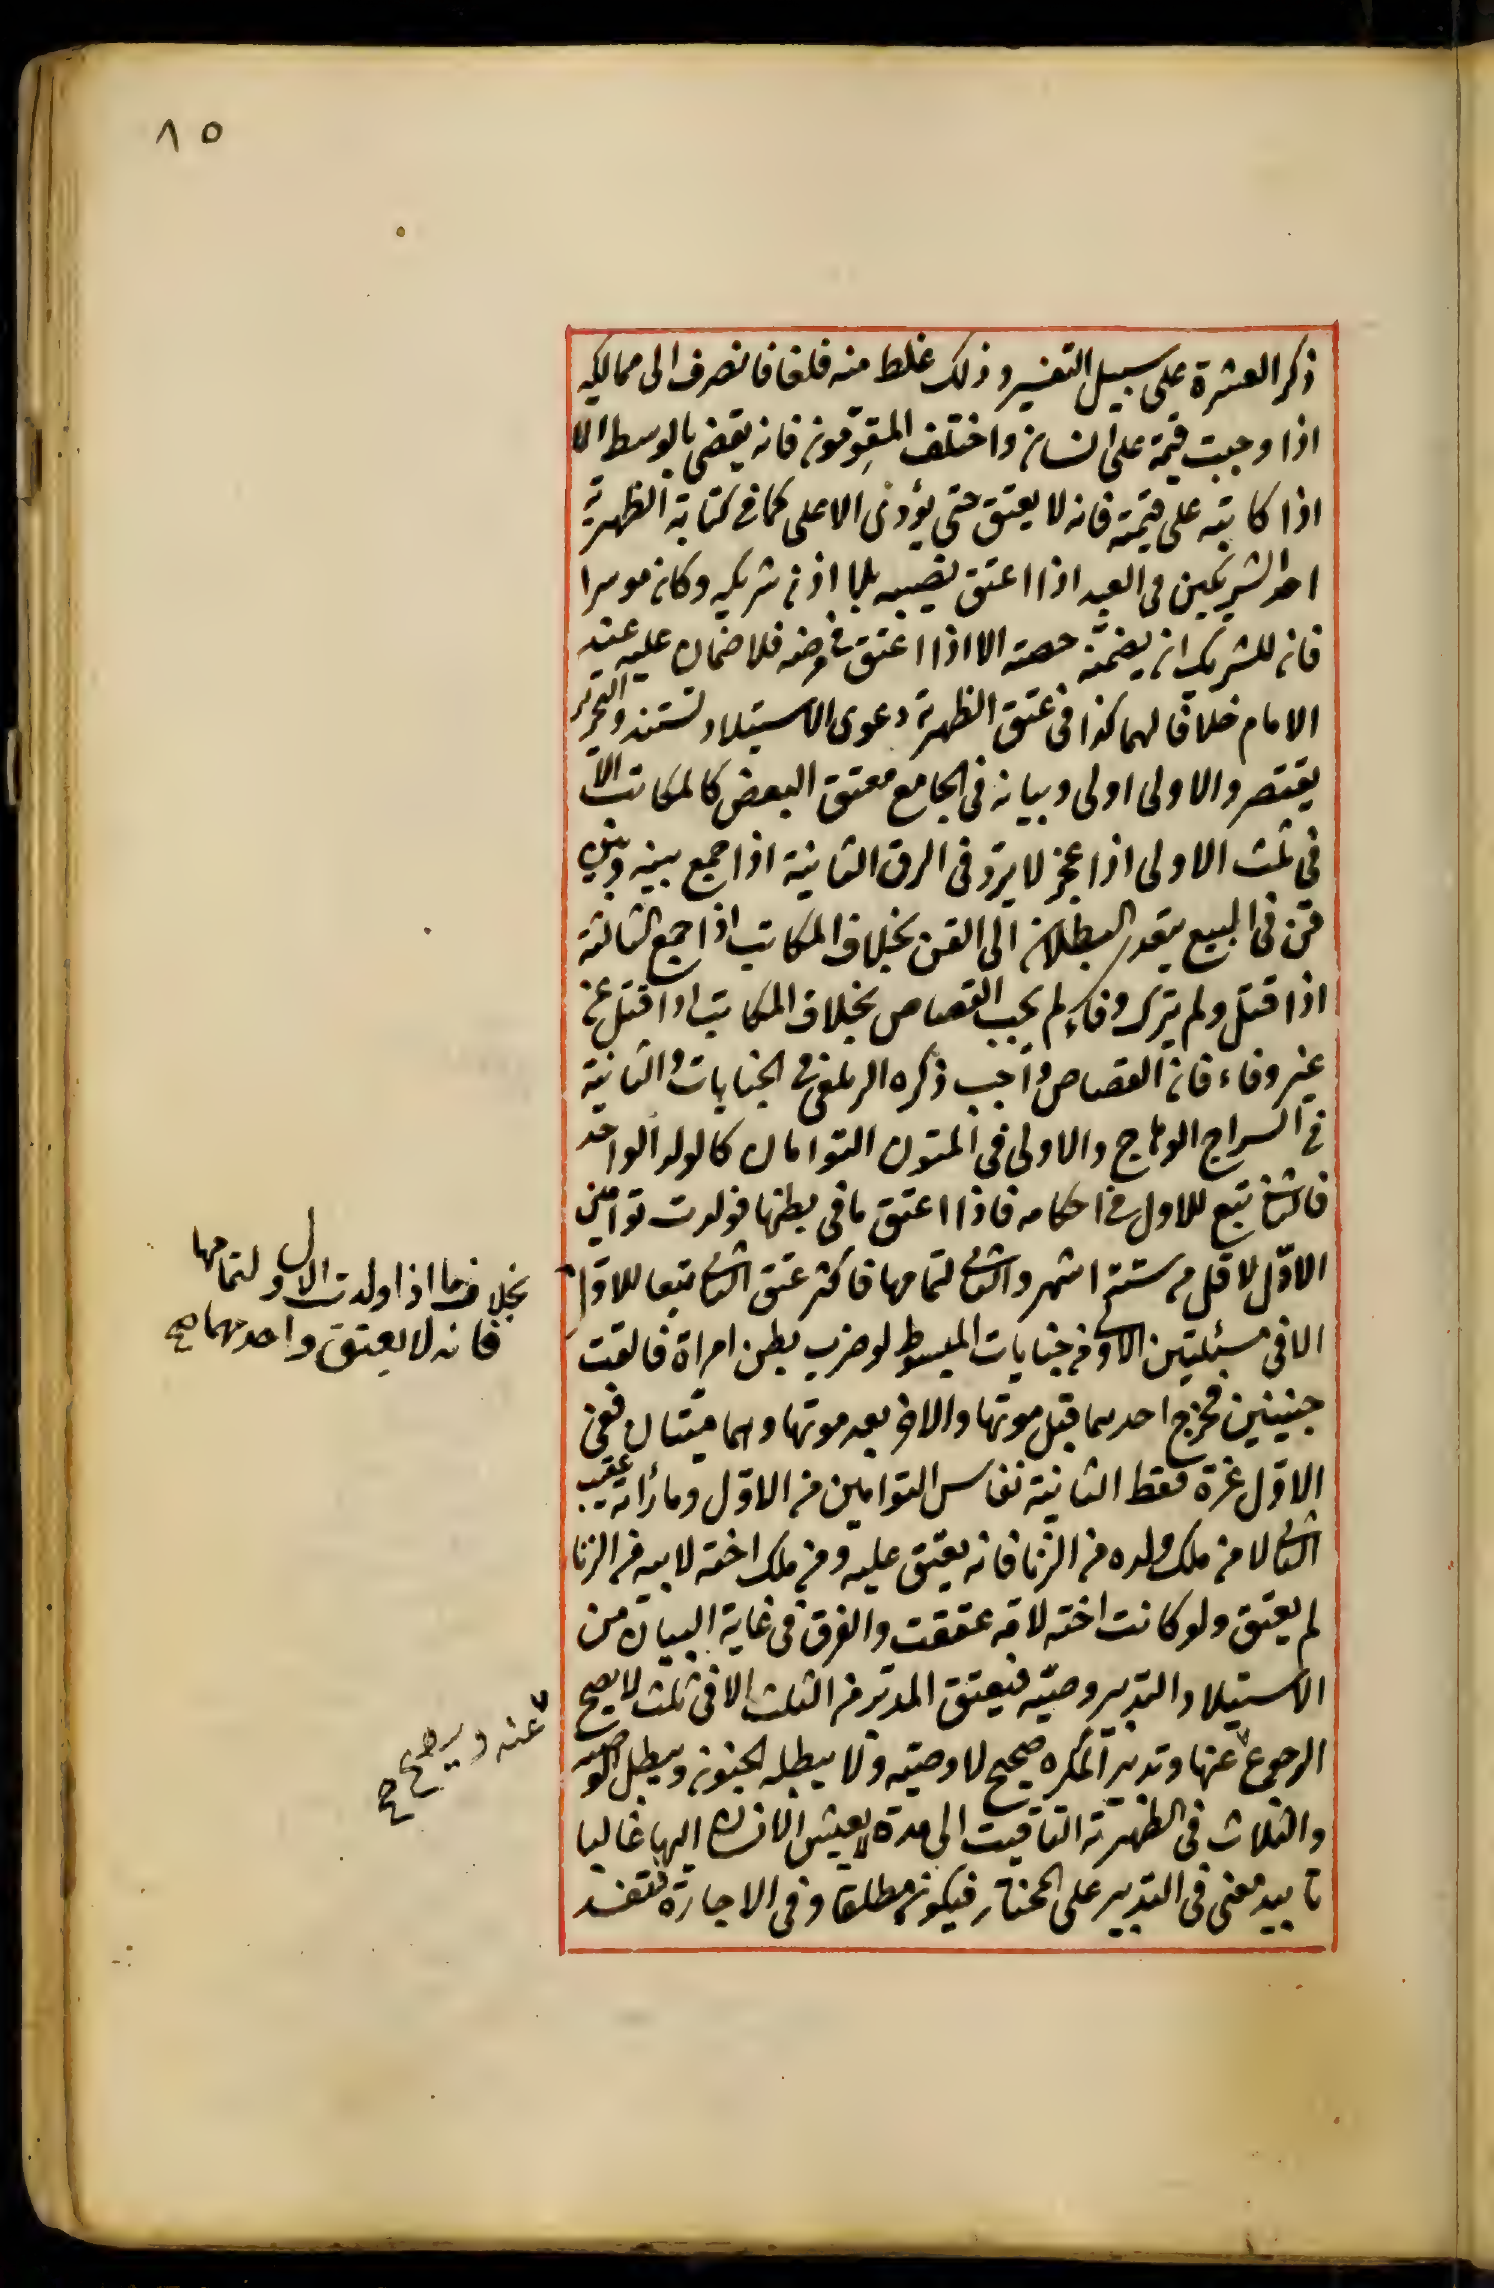 ٨٥
ذكر العشرة على سبيل التفسير وذلك غلط منه فلغا فانصرف الى مماليكه
اذا وجبت قيمة على انسان واختلف المقومون فانه يقضى بالوسط الا
اذا كاتبه على قيمته فانه لا يعتق حتى يؤدى الاعلى كما فى كتابة الظهيرية
احد الشريكين فى العبد اذا اعتق نصيبه بلا اذن شريكه وكان موسرا
فان للشريك ان يضمنه حصته الا اذا اعتق فى مرضه فلا ضمان عليه عند
الامام خلافا لهما كذا فى عتق الظهيرية دعوى الاستيلاد تستند والتحرير
يقتصر والاولى اولى وبيانه فى الجامع معتق البعض كالمكاتب الا
فى ثلث الاولى اذا عجز لا يرد فى الرق الثانية اذا جمع بينه وبين
قن فى البيع يتعدى البطلان الى القن بخلاف المكاتب اذا جمع الثالثة
اذا قتل ولم يترك وفاء لم يجب القصاص بخلاف المكاتب اذا قتل عن
غير وفاء فان القصاص واجب ذكره الزيلعى فى الجنايات والثانية
فى السراج الوهاج والاولى فى المتون التوامان كالولد الواحد
فالثانى تبع للاول فى احكامه فاذا اعتق ما فى بطنها فولدت توامين
الاول لاقل من ستة اشهر والثانى لتمامها فاكثر عتق الثانى تبعا للاول
الا فى مسئلتين الاولى فى جنايات المبسوط لو ضرب بطن امراة فالقت
جنينين فخرج احدهما قبل موتها والاخر بعد موتها وهما ميتان ففى
الاول غرة فقط الثانية نفاس التوامين من الاول وما رأته عقيب
الثانى لا من ملك ولده من الزنا فانه يعتق عليه ومن ملك اخته لابيه من الزنا
لم يعتق ولو كانت اخته لامه عتقت والفرق فى غاية البيان من
الاستيلاد التدبير وصية فيعتق المدبر من الثلث الا فى ثلث لا يصح
الرجوع عنها وتدبير المكره صحيح لا وصيته ولا يبطله الجنون ويبطل الوصية
والثلاث فى الظهيرية التاقيت الى مدة لا يعيش الانسان اليها غالبا
تابيد معنى فى التدبير على المختار فيكون مطلقا وفى الاجارة فتفسد
بخلاف ما اذا ولدت الاول لتمامها
فانه لا يعتق واحد منهما صح
عنه ويصح صح